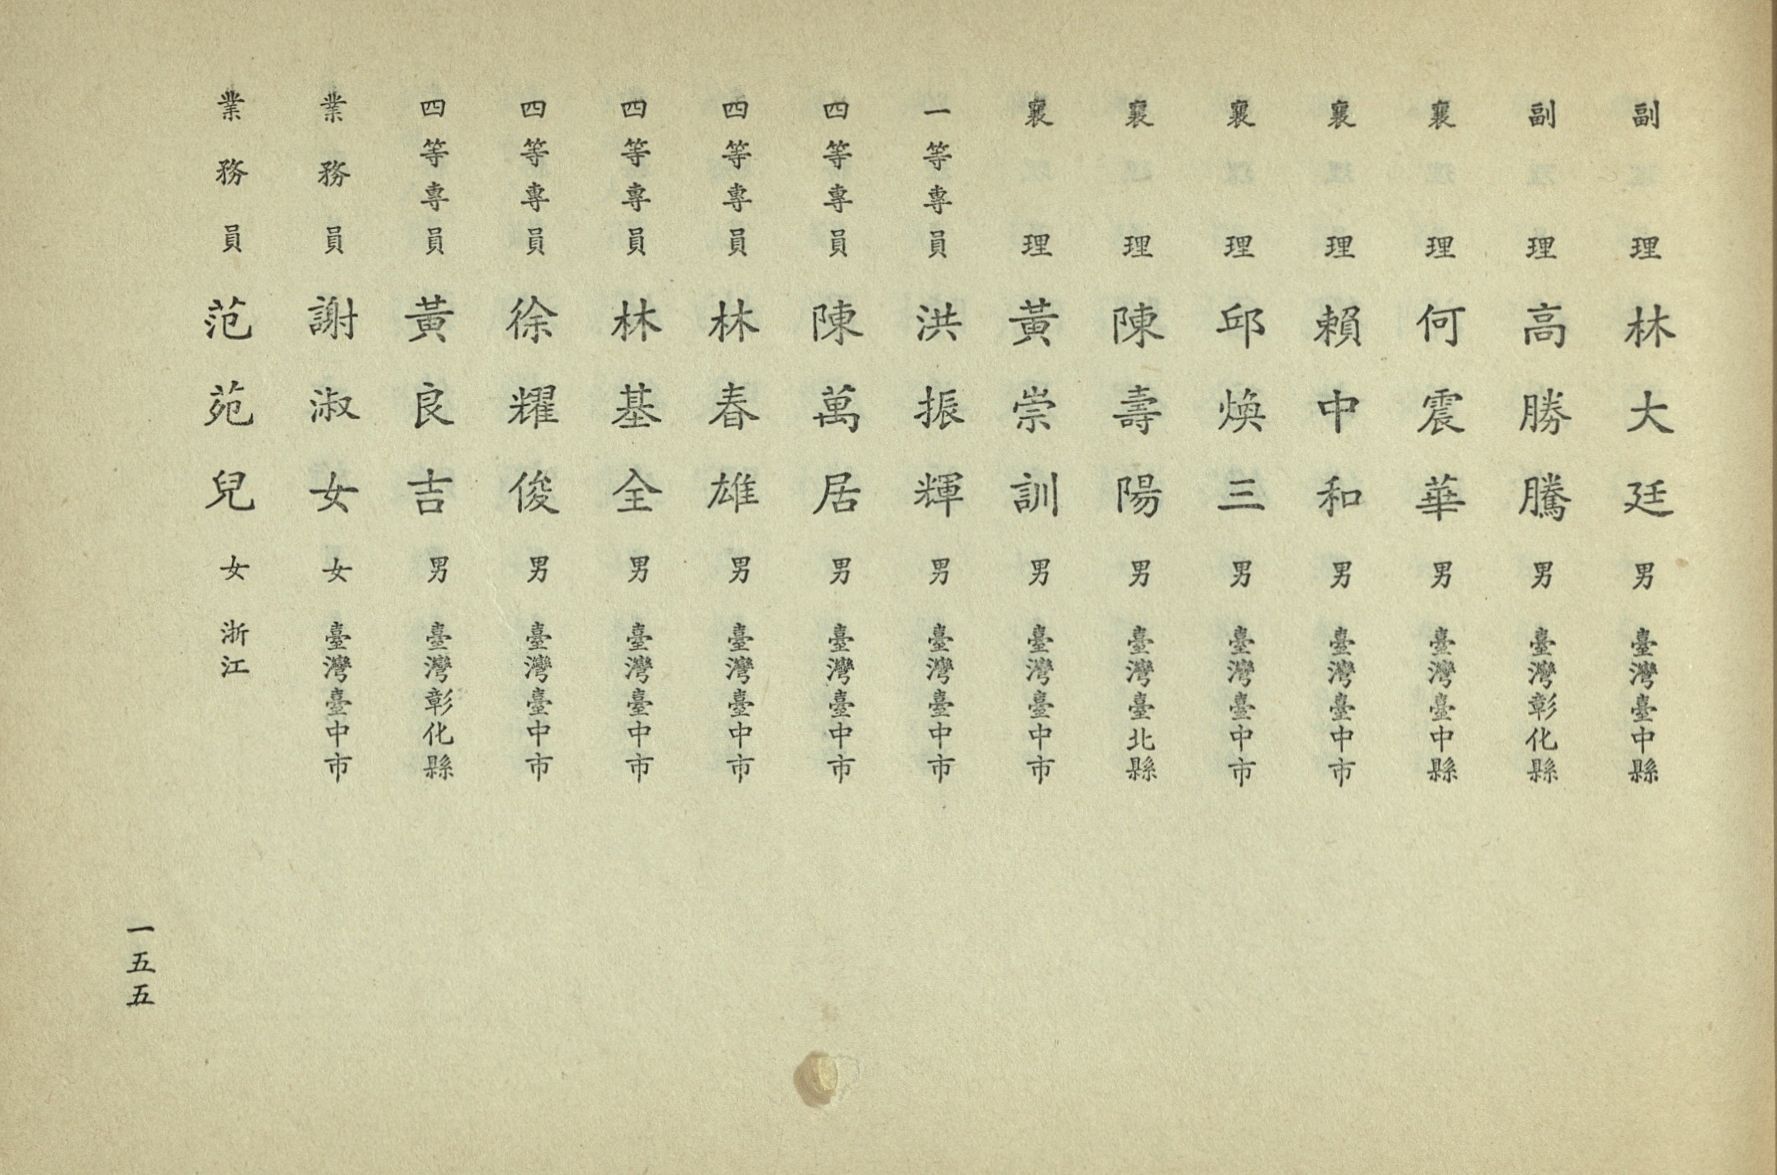 副理 林大廷 男 臺灣臺中縣
副理 高勝騰 男 臺灣彰化縣
襄理 何震華 男 臺灣臺中縣
襄理 賴中和 男 臺灣臺中市
襄理 邱煥三 男 臺灣臺中市
襄理 陳壽陽 男 臺灣臺北縣
襄理 黃崇訓 男 臺灣臺中市
一等專員 洪振輝 男 臺灣臺中市
四等專員 陳萬居 男 臺灣臺中市
四等專員 林春雄 男 臺灣臺中市
四等專員 林基全 男 臺灣臺中市
四等專員 徐耀俊 男 臺灣臺中市
四等專員 黃良吉 男 臺灣彰化縣
業務員 謝淑女 女 臺灣臺中市
業務員 范苑兒 女 浙江
一五五